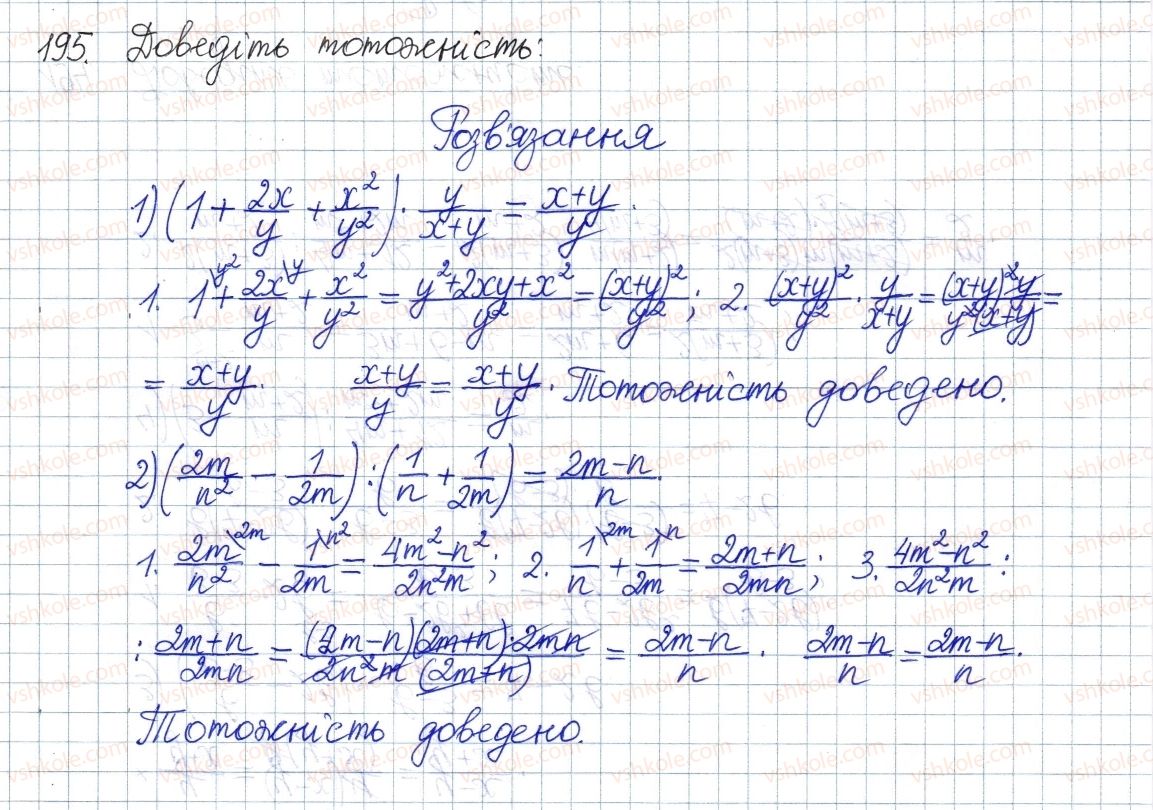 195. Доведіть тотожність:
Розв'язання
1) (1 + 2x/y + x²/y²) · y/(x+y) = (x+y)/y.
1. 1\y² + 2x\y/y + x²/y² = (y²+2xy+x²)/y² = (x+y)²/y²; 2. (x+y)²/y² · y/(x+y) = (x+y)²y/(y²(x+y)) =
= (x+y)/y. (x+y)/y = (x+y)/y. Тотожність доведено.
2) (2m/n² − 1/2m) : (1/n + 1/2m) = (2m−n)/n.
1. 2m\2m/n² − 1\n²/2m = (4m²−n²)/2n²m; 2. 1\2m/n + 1\n/2m = (2m+n)/2mn; 3. (4m²−n²)/2n²m :
: (2m+n)/2mn = (2m−n)(2m+n)·2mn/(2n²m(2m+n)) = (2m−n)/n. (2m−n)/n = (2m−n)/n.
Тотожність доведено.